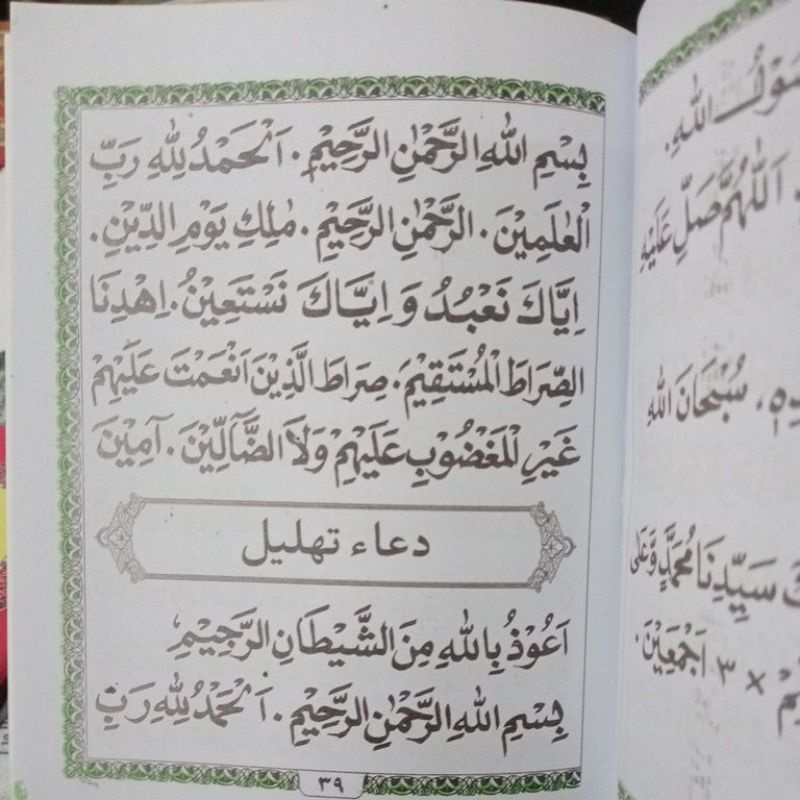 بِسْمِ اللهِ الرَّحْمٰنِ الرَّحِيْمِ. اَلْحَمْدُ لِلّٰهِ رَبِّ
الْعٰلَمِيْنَ. الرَّحْمٰنِ الرَّحِيْمِ. مٰلِكِ يَوْمِ الدِّيْنِ.
اِيَّاكَ نَعْبُدُ وَاِيَّاكَ نَسْتَعِيْنُ. اِهْدِنَا
الصِّرَاطَ الْمُسْتَقِيْمَ. صِرَاطَ الَّذِيْنَ اَنْعَمْتَ عَلَيْهِمْ
غَيْرِ الْمَغْضُوْبِ عَلَيْهِمْ وَلَا الضَّآلِّيْنَ. آمِيْنَ
دعاء تهليل
اَعُوْذُ بِاللهِ مِنَ الشَّيْطَانِ الرَّجِيْمِ
بِسْمِ اللهِ الرَّحْمٰنِ الرَّحِيْمِ. اَلْحَمْدُ لِلّٰهِ رَبِّ
٣٩
اللهِ.
اَللّٰهُمَّ صَلِّ عَلَيْهِ
سُبْحَانَ اللهِ
سَيِّدِنَا مُحَمَّدٍ وَّعَلَى
× ٣ اَجْمَعِيْنَ.